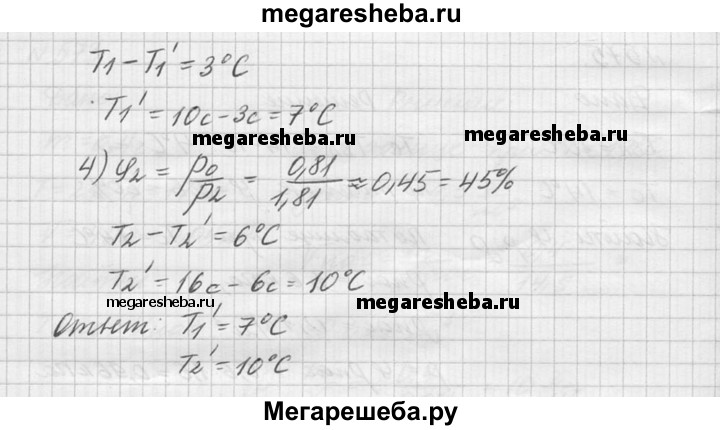 megaresheba.ru
T₁ - T₁' = 3°C
T₁' = 10c - 3c = 7°C
megaresheba.ru megaresheba.ru
4) φ₂ = p₀/p₂ = 0,81/1,81 ≈ 0,45 = 45%
T₂ - T₂' = 6°C
T₂' = 16c - 6c = 10°C
megaresheba.ru megaresheba.ru
Ответ: T₁' = 7°C
T₂' = 10°C
Мегарешеба.ру